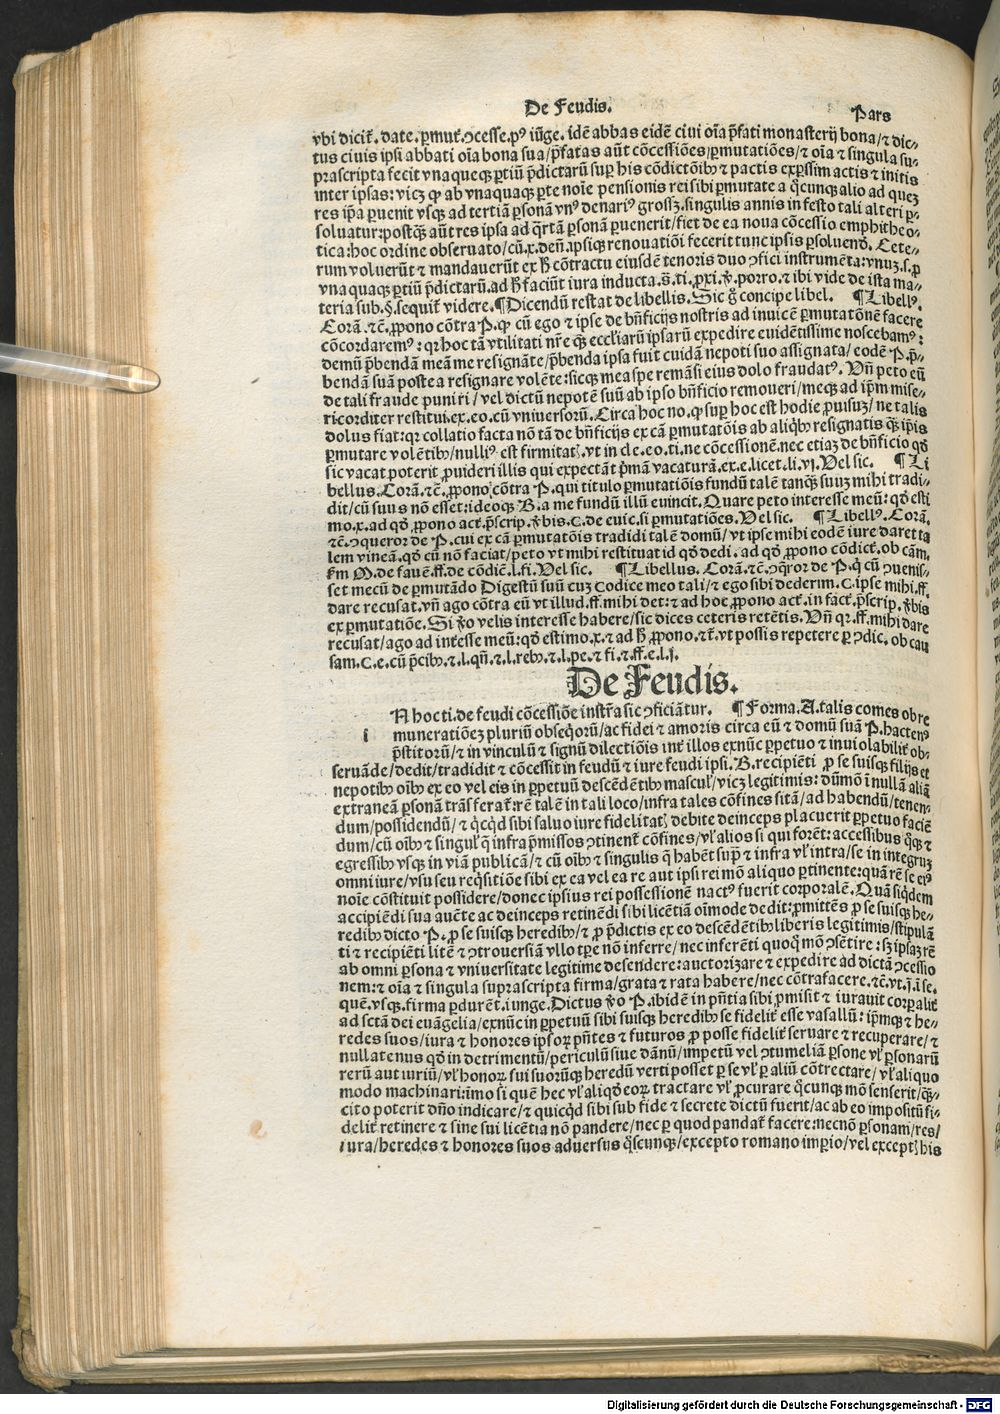 De Feudis.
Pars
vbi dicit̃. date. ꝑmut̃. ꝯcesse. pꝰ iũge. idẽ abbas eidẽ ciui oĩa p̃fati monasterij bona/⁊ dic⸗
tus ciuis ipsi abbati oĩa bona sua/p̃fatas aũt cõcessiões/ꝑmutatiões/⁊ oĩa ⁊ singula su⸗
prascripta fecit vnaqueqꝫ ꝑtiũ p̃dictarũ suꝑ his cõdictõibꝫ ⁊ pactis exp̃ssim actis ⁊ initis
inter ipsas: vicꝫ ꝙ ab vnaquaqꝫ ꝑte noĩe pensionis rei sibi ꝑmutate a q̃cunqꝫ alio ad quez
res ip̃a ꝑuenit vsqꝫ ad tertiã ꝑsonã vnꝰ denariꝰ grossꝫ. singulis annis in festo tali alteri ꝑ⸗
soluatur: postq̃ꝫ aũt res ipsa ad q̃rtã ꝑsonã ꝑuenerit/fiet de ea noua cõcessio emphitheo⸗
tica: hoc ordine obseruato/cũ.x. deñ. ipsiqꝫ renouatiõi fecerit tunc ipsis ꝑsoluenđ. Cete⸗
rum voluerũt ⁊ mandauerũt ex h̃ cõtractu eiusdẽ tenoris duo ꝯfici instrumẽta: vnuz.s. ꝓ
vnaquaqꝫ ꝑtiũ p̃dictarũ. ad h̃ faciũt iura inducta. s̃. ti. ꝓxi. ꝟ. porro. ⁊ ibi vide de ista ma⸗
teria sub.§. sequit̃ videre. ¶Dicendũ restat de libellis. Sic g̃ concipe libel. ¶Libellꝰ.
Corã. ⁊c̃. ꝓpono cõtra P. ꝙ cũ ego ⁊ ipse de bñficijs nostris ad inuicẽ ꝑmutatõnẽ facere
cõcordaremꝰ: qꝛ hoc tã vtilitati nr̃e qꝫ eccliarũ ipsarũ expedire euidẽtissime noscebamꝰ:
demũ p̃bendã meã me resignãte/p̃benda ipsa fuit cuidã nepoti suo assignata/eodẽ P. p̃⸗
bendã suã postea resignare volẽte: sicqꝫ mea spe remãsi eius dolo fraudatꝰ. Vñ peto eũ
de tali fraude puniri/vel dictũ nepotẽ suũ ab ipso bñficio remoueri/meqꝫ ad ip̃m mise⸗
ricorditer restitui. ex. eo. cũ vniuersorũ. Circa hoc no. ꝙ suꝑ hoc est hodie ꝓuisuz/ne talis
dolus fiat: qꝛ collatio facta nõ tã de bñficijs ex cã ꝑmutatõis ab aliqꝫ resignatis q̃ꝫ ip̃is
ꝑmutare volẽtibꝫ/nulliꝰ est firmitatꝭ. vt in cle. eo. ti. ne cõcessionẽ. nec etiaz de bñficio qđ
sic vacat poterit ꝓuideri illis qui expectãt p̃mã vacaturã. ex. e. licet. li. vj. Vel sic. ¶Li
bellus. Corã. ⁊c̃. ꝓpono cõtra P. qui titulo ꝑmutatiõis fundũ talẽ tanqꝫ suuz mihi tradi⸗
dit/cũ suus nõ esset: ideoqꝫ B. a me fundũ illũ euincit. Quare peto interesse meũ: qđ esti
mo.x. ad qđ ꝓpono act̃. p̃scrip. ꝟbis. C. de euic. si ꝑmutatiões. Vel sic. ¶Libellꝰ. Corã.
⁊c̃. ꝯqueror de P. cui ex cã ꝑmutatõis tradidi talẽ domũ/vt ipse mihi eodẽ iure daret ta
lem vineã. qđ cũ nõ faciat/peto vt mihi restituat id qđ dedi. ad qđ ꝓpono cõdict̃. ob cãm.
km̃ M. de fauẽ. ff. de cõdic̃. l. fi. Vel sic. ¶Libellus. Corã. ⁊c̃ ꝯq̃ror de P. ꝙ cũ ꝯuenis⸗
set mecũ de ꝑmutãdo Digestũ suũ cuz Codice meo tali/⁊ ego sibi dederim. C. ipse mihi. ff.
dare recusat. vñ ago cõtra eũ vt illud. ff. mihi det: ⁊ ad hoc ꝓpono act̃. in fact̃. p̃scrip. ꝟbis
ex ꝑmutatiõe. Si ꝟo velis interesse habere/sic dices ceteris retẽtis. Vñ qꝛ. ff. mihi dare
recusat/ago ad inter̃esse meũ: qđ estimo.x. ⁊ ad h̃ ꝓpono. ⁊c̃. vt possis repetere ꝑ ꝯdic. ob cau
sam. C. e. cũ p̃cibꝫ. ⁊. l. qñ. ⁊. l. rebꝫ. ⁊. l. pe. ⁊ fi. ⁊. ff. e. l. j.
De Feudis.
iN hoc ti. de feudi cõcessiõe instr̃a sic ꝯficiãtur. ¶Forma. A. talis comes ob re
muneratiõez pluriũ obseq̃orũ/ac fidei ⁊ amoris circa eũ ⁊ domũ suã P. hactenꝰ
p̃stitorũ/⁊ in vinculũ ⁊ signũ dilectiõis int̃ illos exnũc ꝑpetuo ⁊ inuiolabilit̃ ob⸗
seruãde/dedit/tradidit ⁊ cõcessit in feudũ ⁊ iure feudi ipsi. B. recipiẽti ꝓ se suisqꝫ filijs et
nepotibꝫ oĩbꝫ ex eo vel eis in ꝑpetuũ descẽdẽtibꝫ masculꝭ/vicꝫ legitimis: dũmõ ĩ nullã aliã
extraneã ꝑsonã trãsferat̃: rẽ talẽ in tali loco/infra tales cõfines sitã/ad habendũ/tenen⸗
dum/possidendũ/⁊ q̃cq̃d sibi saluo iure fidelitatꝭ debite deinceps placuerit ꝑpetuo faciẽ
dum/cũ oĩbꝫ ⁊ singulꝭ q̃ infra p̃missos ꝯtinent̃ cõfines/vl̃ alios si qui forẽt: accessibus qꝫ ⁊
egressibꝫ vsqꝫ in viã publicã/⁊ cũ oĩbꝫ ⁊ singulis q̃ habẽt sup̃ ⁊ infra vl̃ intra/se in integruz
omni iure/vsu seu req̃sitiõe sibi ex ea vel ea re aut ipsi rei mõ aliquo ꝑtinente: quã rẽ se eiꝰ
noĩe cõstituit possidere/donec ipsius rei possessionẽ nactꝰ fuerit corporalẽ. Quã siq̃dem
accipiẽdi sua aucte ac deinceps retinẽdi sibi licẽtiã oĩmode dedit: ꝓmittẽs ꝓ se suisqꝫ he⸗
redibꝫ dicto P. ꝓ se suisqꝫ heredibꝫ/⁊ ꝓ p̃dictis ex eo descẽdẽtibꝫ liberis legitimis/stipulã
ti ⁊ recipiẽti litẽ ⁊ ꝯtrouersiã vllo tꝑe nõ inferre/nec inferẽti quoq̃ mõ ꝯsẽtire: sꝫ ipsaz rẽ
ab omni ꝑsona ⁊ vniuersitate legitime defendere: auctorizare ⁊ expedire ad dictã ꝯcessio
nem: ⁊ oĩa ⁊ singula suprascripta firma/grata ⁊ rata habere/nec cõtrafacere. ⁊c̃. vt. j. ĩ. se.
quẽ. vsqꝫ. firma ꝑdurẽt. iunge. Dictus ꝟo P. ibidẽ in p̃ntia sibi ꝓmisit ⁊ iurauit corꝑalit̃
ad sc̃tã dei euãgelia/exnũc in ꝑpetuũ sibi suisqꝫ heredibꝫ se fidelit̃ esse vasallũ: ip̃mqꝫ ⁊ he⸗
redes suos/iura ⁊ honores ipsoꝝ p̃ntes ⁊ futuros ꝓ posse fidelit̃ seruare ⁊ recuperare/⁊
nullatenus qđ in detrimentũ/periculũ siue dãnũ/impetũ vel ꝯtumeliã ꝑsone vl̃ ꝑsonarũ
rerũ aut iuriũ/vl̃ honoꝝ sui suorũqꝫ heredũ verti posset ꝑ se vl̃ ꝑ aliũ cõtrectare/vl̃ aliquo
modo machinari: imo si quẽ hec vl̃ aliq̃d eoꝝ tractare vl̃ ꝓcurare q̃cunqꝫ mõ senserit/q̃ꝫ⸗
cito poterit dño indicare/⁊ quicq̃d sibi sub fide ⁊ secrete dictũ fuerit/ac ab eo impositũ fi⸗
delit̃ retinere ⁊ sine sui licẽtia nõ pandere/nec ꝑ quod pandat̃ facere: necnõ ꝑsonam/res/
iura/heredes ⁊ honores suos aduersus q̃scunqꝫ/excepto romano imꝑio/vel exceptꝭ his
Digitalisierung gefördert durch die Deutsche Forschungsgemeinschaft - DFG